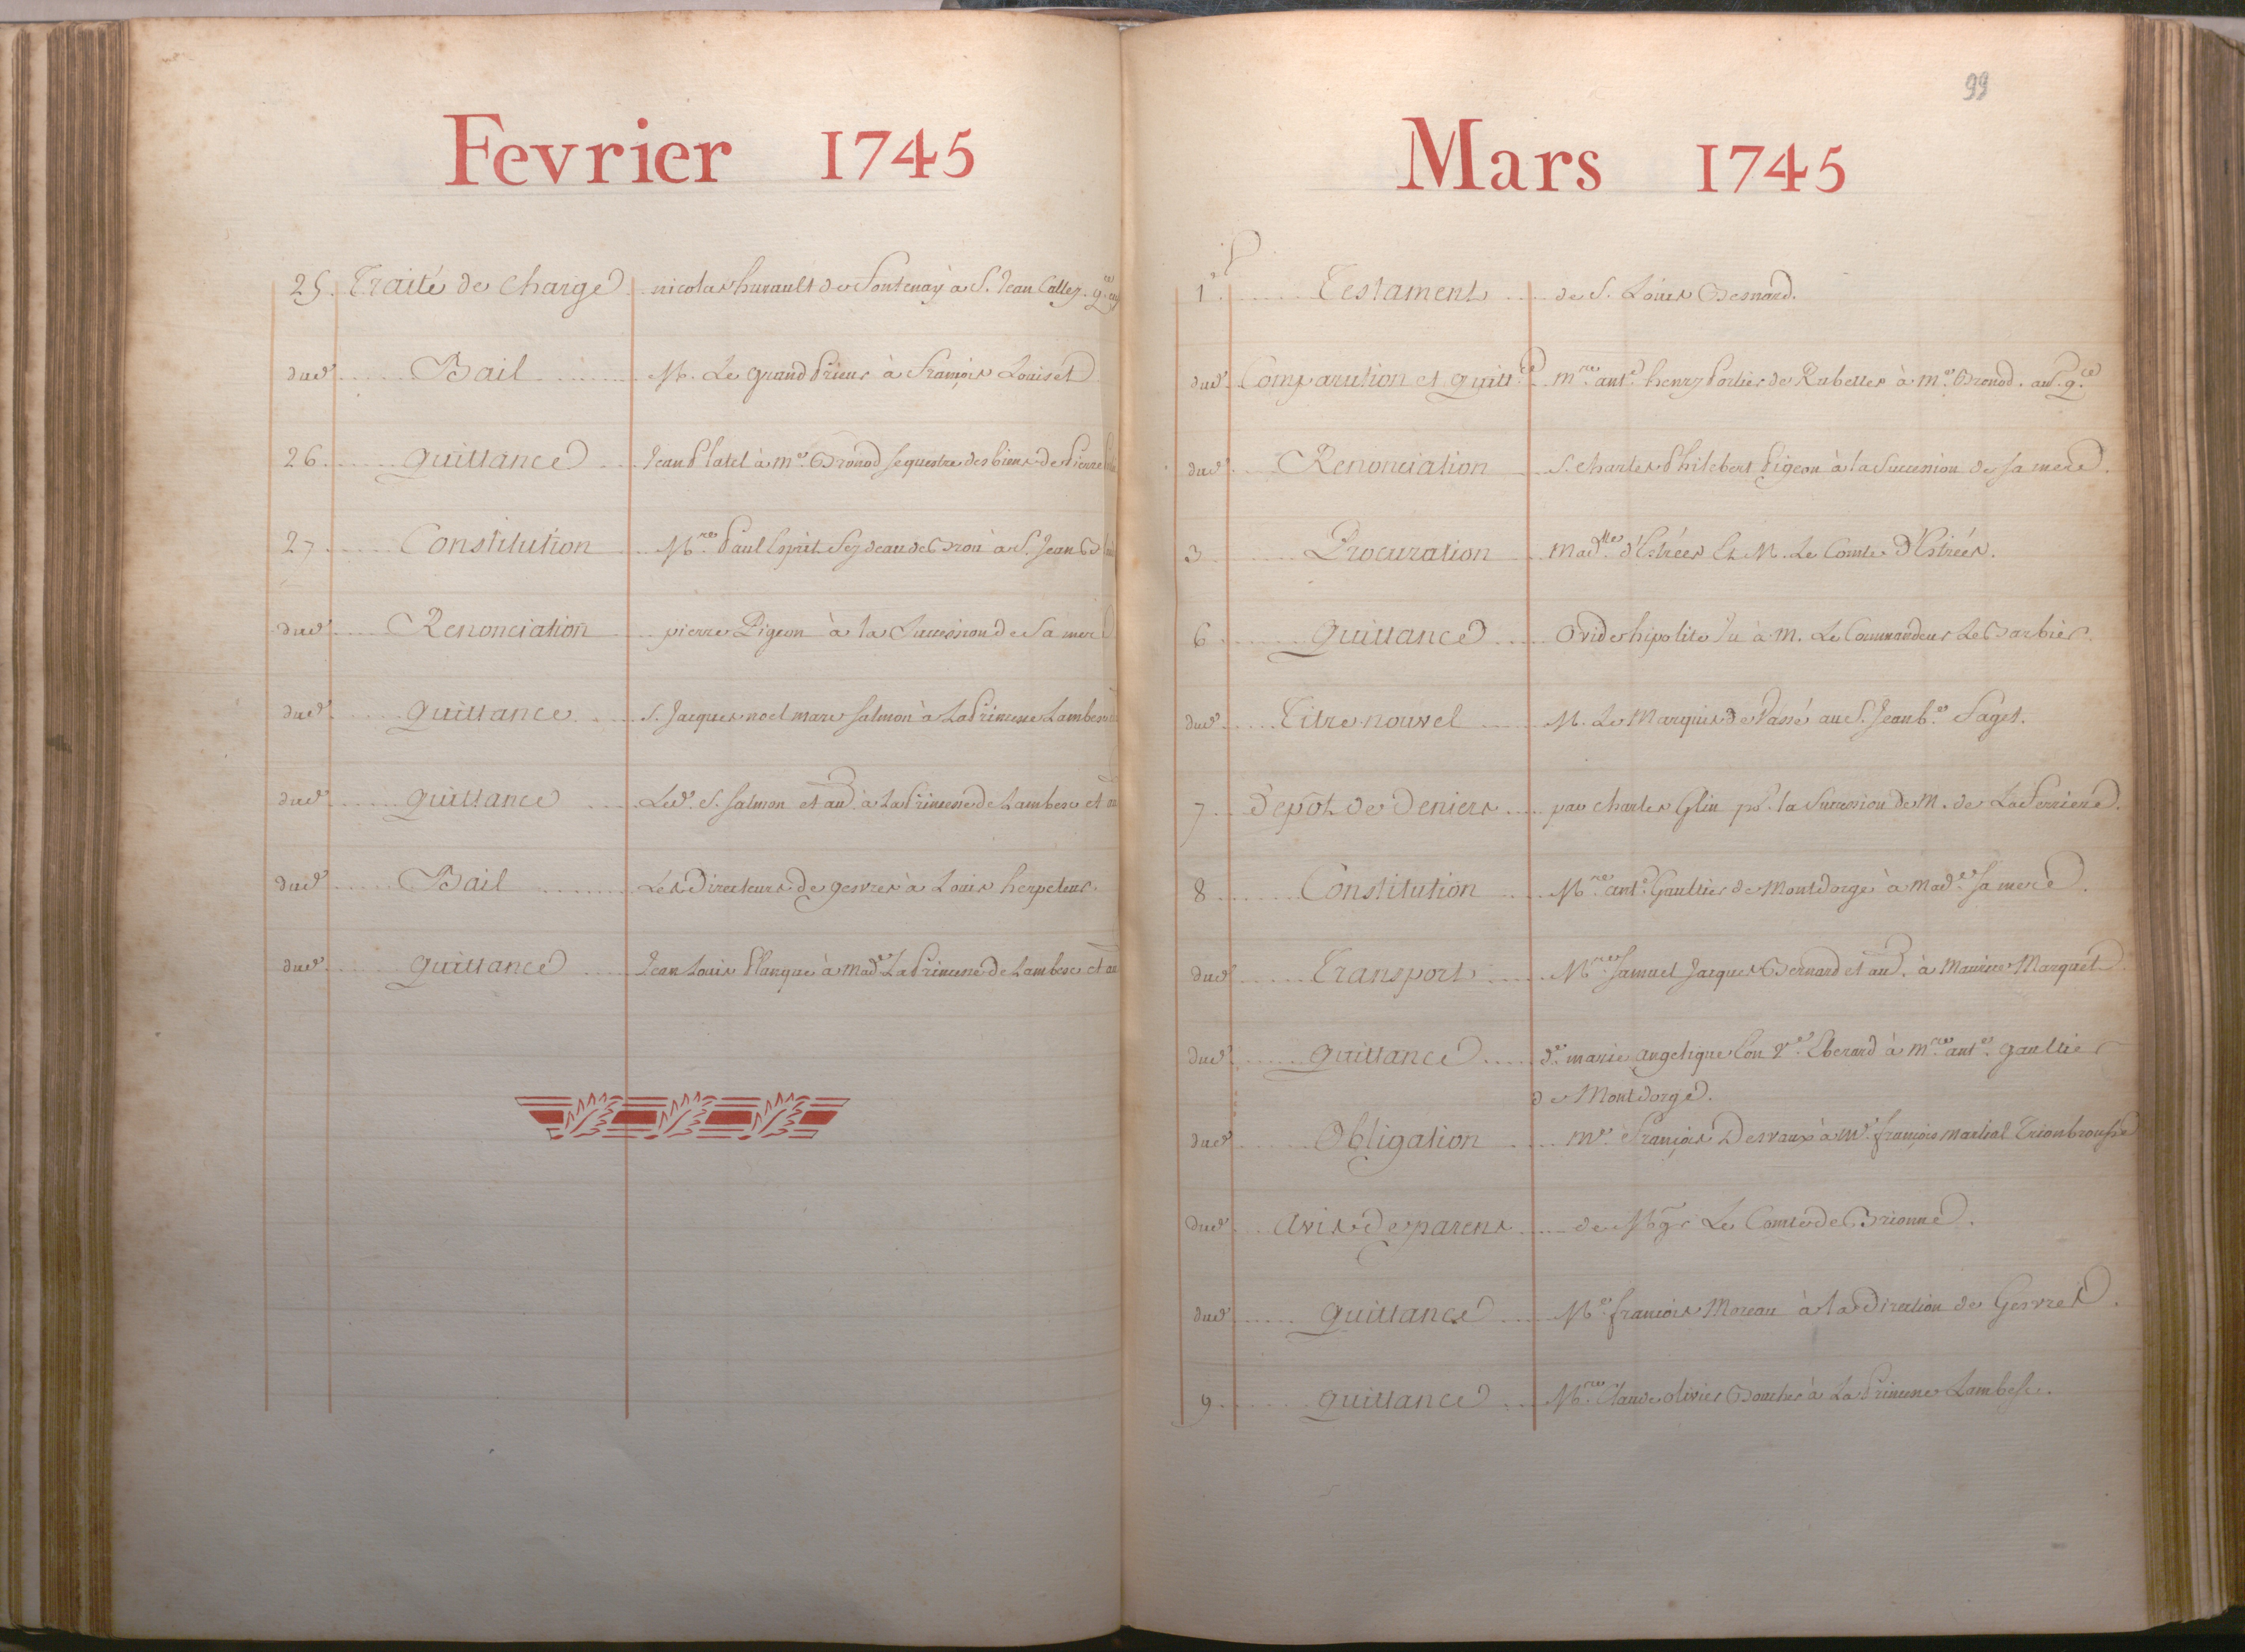 Fevrier 1745
25. Traité de Charge nicolas hurault de Fontenay à S. Jean Callez.
dud. Bail M. Le grand Prieur à François Louiset
26. quittance Jean Platel à me. Bronod sequestre des biens de Pierre
27 Constitution Mre. Paul Esprit Feydeau de Brou à S. Jean
dud. Renonciation pierre Pigeon à la Succession de Sa mere
dud. quittance S. Jacques noel marc salmon à La Princesse Lambesc
dud. quittance Led. S. salmon et au. à La Princesse de Lambesc et
dud. Bail Les Directeurs de gesvres à Louis herpeteur.
dud. quittance Jean Louis Planque à made. La Princesse de Lambesc et au
99
Mars 1745
1r. Testament de S. Louis Besnard.
dud. Comparution et quitt.ce mre. ant.e henry Portier de Rubelles à me. Bronod. au. q.ce
dud. Renonciation S. Charles Philebert Pigeon à la Succession de sa mere.
3 Procuration Madlle. d'Estrées Et M. Le Comte d'Estrées.
6 quittance Ovide hipolite à M. Le Commandeur Le Barbier.
dud. Titre nouvel M. Le Marquis de Vassé au S. Jean b.e Saget.
7 Depot de Deniers par Charles Glin pr. la Succession de M. de La Ferriere.
8 Constitution Mre. ant.e Gaultier de Montdorge à Made. sa mere.
dud. Transport Mre. Samuel Jacques Bernard et au. à Maurice Marquet.
dud. quittance de. marie angelique Cou ve. Eberard à mre. ante. gaultier
de Montdorge.
dud. Obligation me. François Desvaux à Me. françois martial Trionbrousse
dud. avis de parens de Mgr Le Comte de Brionne.
dud. quittance Me. françois Moreau à la direction de Gesvres.
9 quittance Mre. Claude olivier Boucher à La Princesse Lambesc.